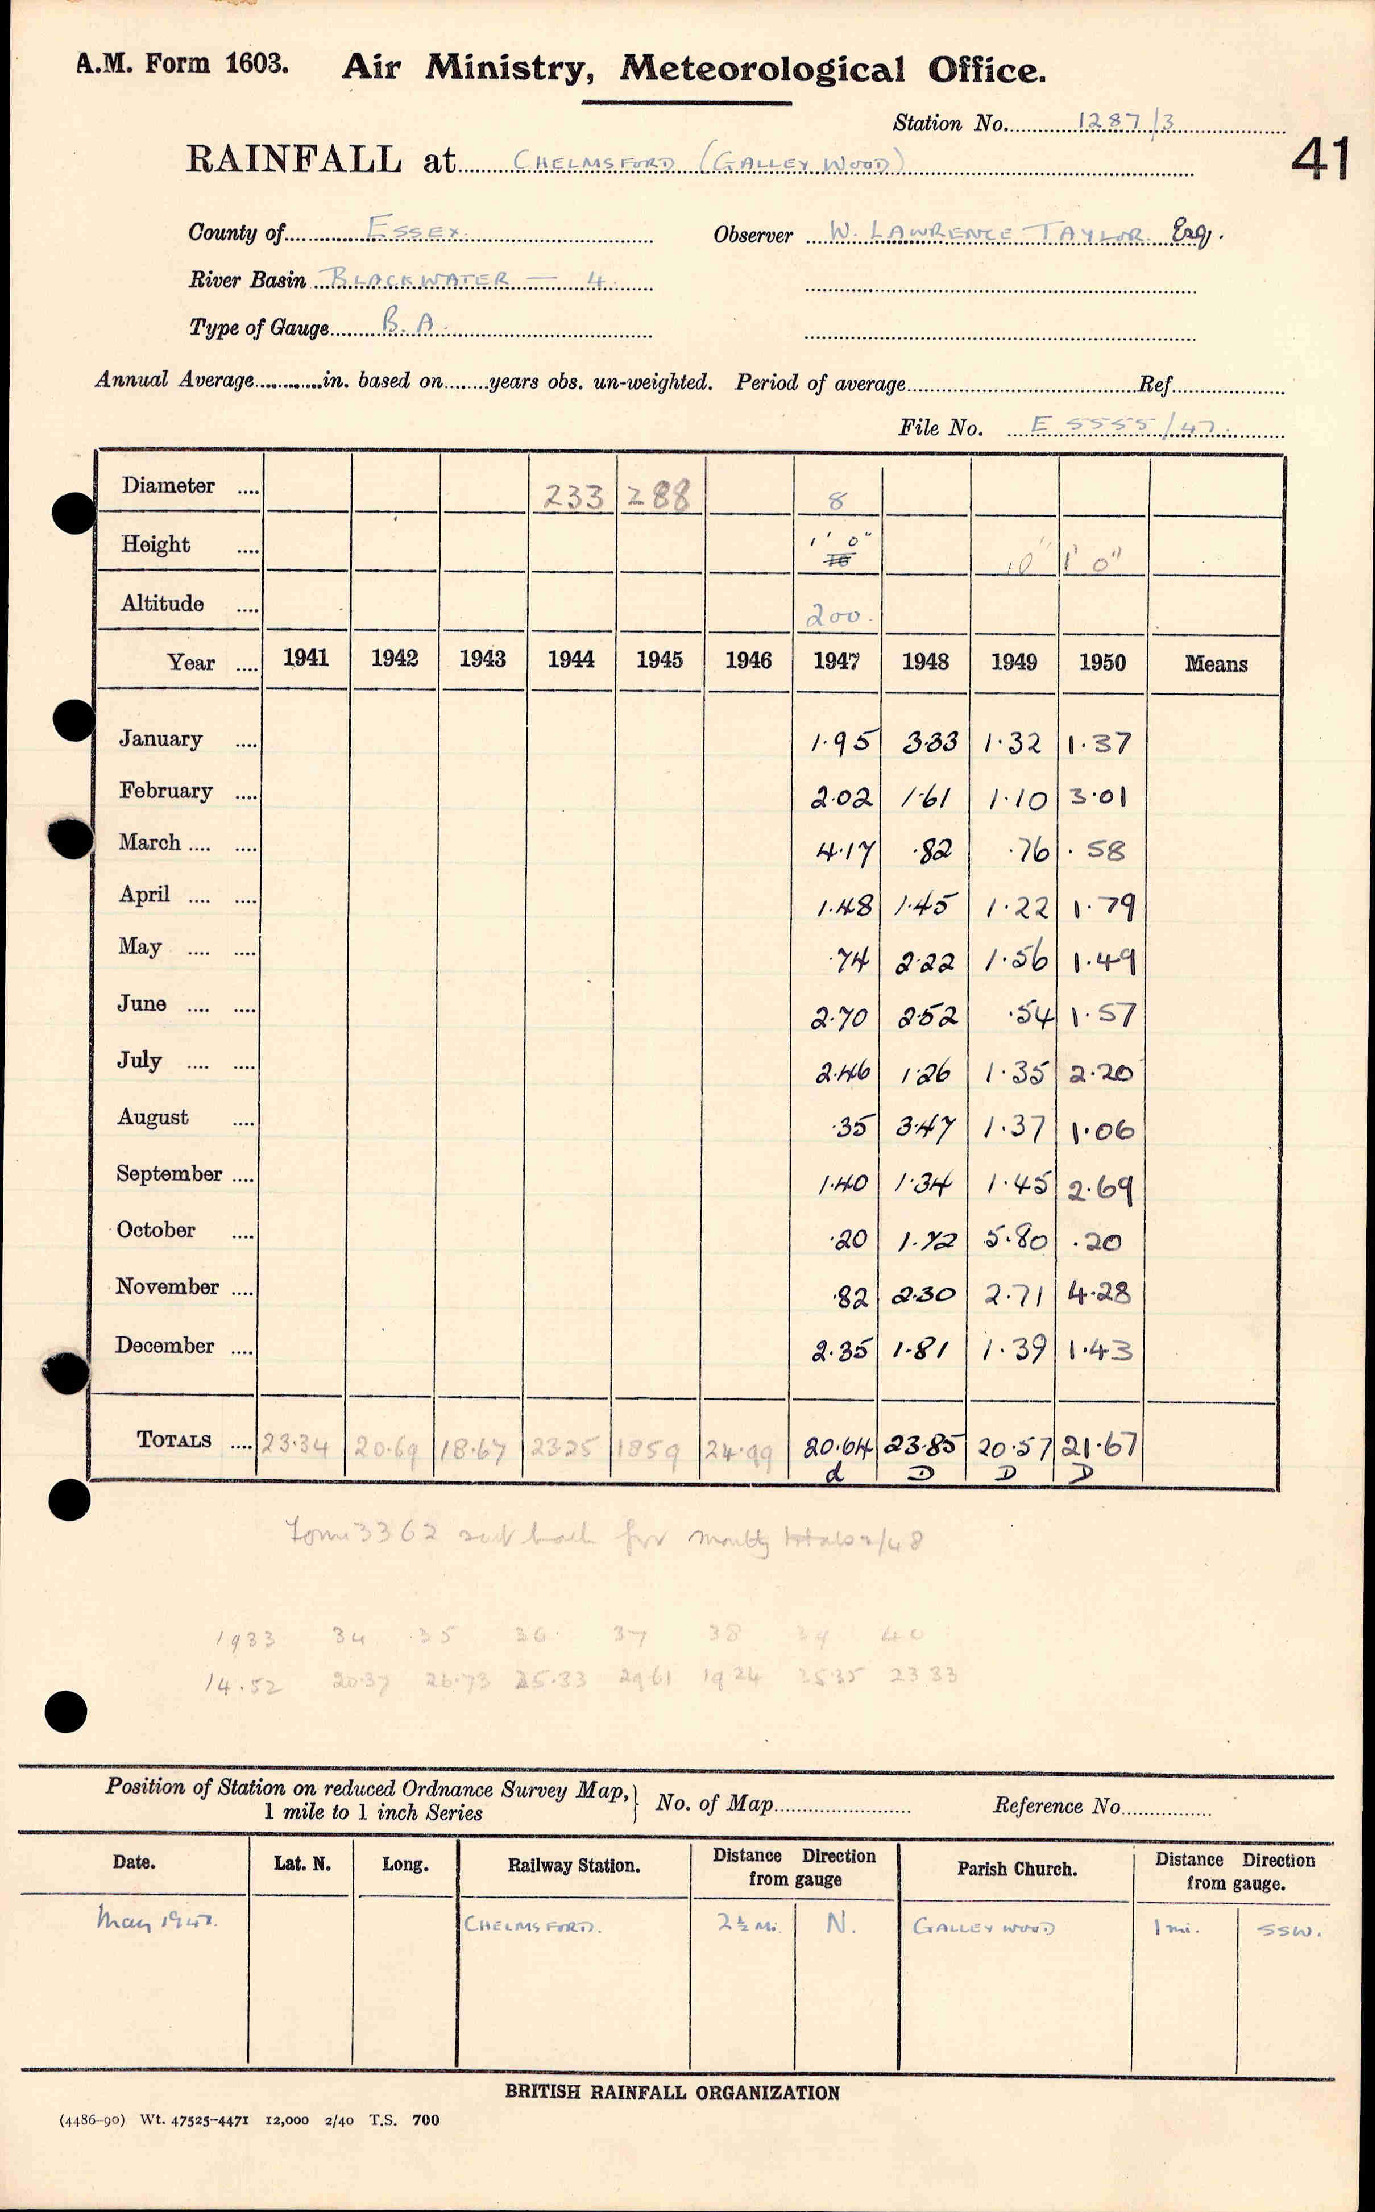 A.M. Form 1603. Air Ministry, Meteorological Office.
Station No. 1287/3
41
RAINFALL at CHELMSFORD (GALLEYWOOD)
County of ESSEX. Observer W. LAWRENCE TAYLOR Esq.
River Basin BLACKWATER — 4
Type of Gauge B.A.
Annual Average in. based on years obs. un-weighted. Period of average Ref.
File No. E 5555/47
Diameter 233 288 8
Height 1' 0" 10" 1' 0"
Altitude 200.
Year 1941 1942 1943 1944 1945 1946 1947 1948 1949 1950 Means
January 1.95 3.33 1.32 1.37
February 2.02 1.61 1.10 3.01
March 4.17 .82 .76 .58
April 1.48 1.45 1.22 1.79
May .74 2.22 1.56 1.49
June 2.70 2.52 .54 1.57
July 2.46 1.26 1.35 2.20
August .35 3.47 1.37 1.06
September 1.40 1.34 1.45 2.69
October .20 1.72 5.80 .20
November .82 2.30 2.71 4.28
December 2.35 1.81 1.39 1.43
TOTALS 23.34 20.69 18.67 23.25 1859 24.99 20.64 23.85 20.57 21.67
d D D D
Form 3362 sent back for monthly totals 2/48
1933 34 35 36 37 38 39 40
14.52 20.37 26.73 25.33 2961 19 24 25.35 23 33
Position of Station on reduced Ordnance Survey Map, 1 mile to 1 inch Series } No. of Map Reference No.
Date. Lat. N. Long. Railway Station. Distance Direction from gauge Parish Church. Distance Direction from gauge.
May 1947. CHELMSFORD. 2½ Mi. N. GALLEYWOOD 1 mi. SSW.
BRITISH RAINFALL ORGANIZATION
(4486-90) Wt. 47525-4471 12,000 2/40 T.S. 700